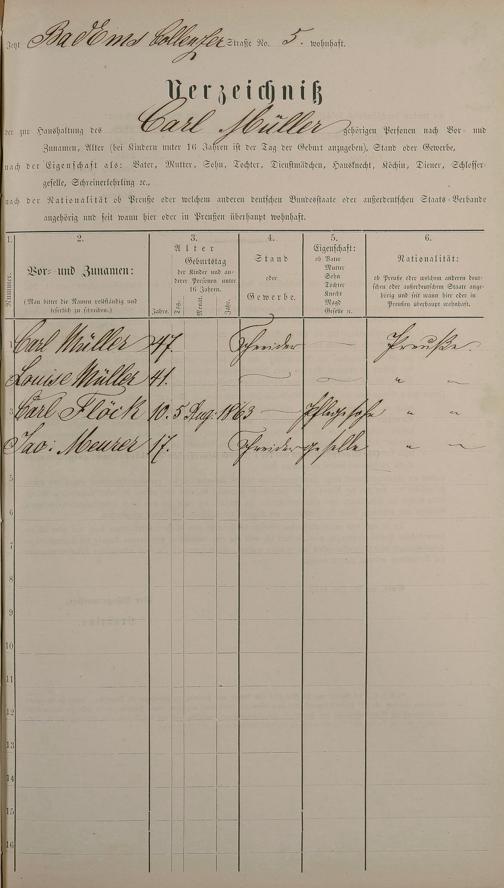 Jetzt Bad Ems Coblenzer Straße No. 5. wohnhaft.
Verzeichniß
der zur Haushaltung des Carl Müller gehörigen Personen nach Vor- und
Zunamen, Alter (bei Kindern unter 16 Jahren ist der Tag der Geburt anzugeben), Stand oder Gewerbe,
nach der Eigenschaft als: Vater, Mutter, Sohn, Tochter, Dienstmädchen, Hausknecht, Köchin, Diener, Schlosser-
geselle, Schreinerlehrling ꝛc.,
nach der Nationalität ob Preuße oder welchem anderen deutschen Bundesstaate oder außerdeutschen Staats-Verbande
angehörig und seit wann hier oder in Preußen überhaupt wohnhaft.
1. 2. 3. 4. 5. 6.
Nummer.
Vor- und Zunamen:
(Man bittet die Namen vollständig und
leserlich zu schreiben.)
Alter
Geburtstag
der Kinder und an-
derer Personen unter
16 Jahren.
Jahre. Tag. Monat. Jahr.
Stand
oder
Gewerbe.
Eigenschaft:
ob Vater
Mutter
Sohn
Tochter
Knecht
Magd
Geselle ꝛc.
Nationalität:
ob Preuße oder welchem anderen deut-
schen oder außerdeutschen Staate ange-
hörig und seit wann hier oder in
Preußen überhaupt wohnhaft.
1 Carl Müller 47. Schneider — Preuße.
Louise Müller 41. — — " —
3 Carl Flöck 10. 5 Aug: 1863 — Pflegesohn " —
Jac: Meurer 17. Schneider geselle " —
5
6
7
8
9
10
11
12
13
14
15
16